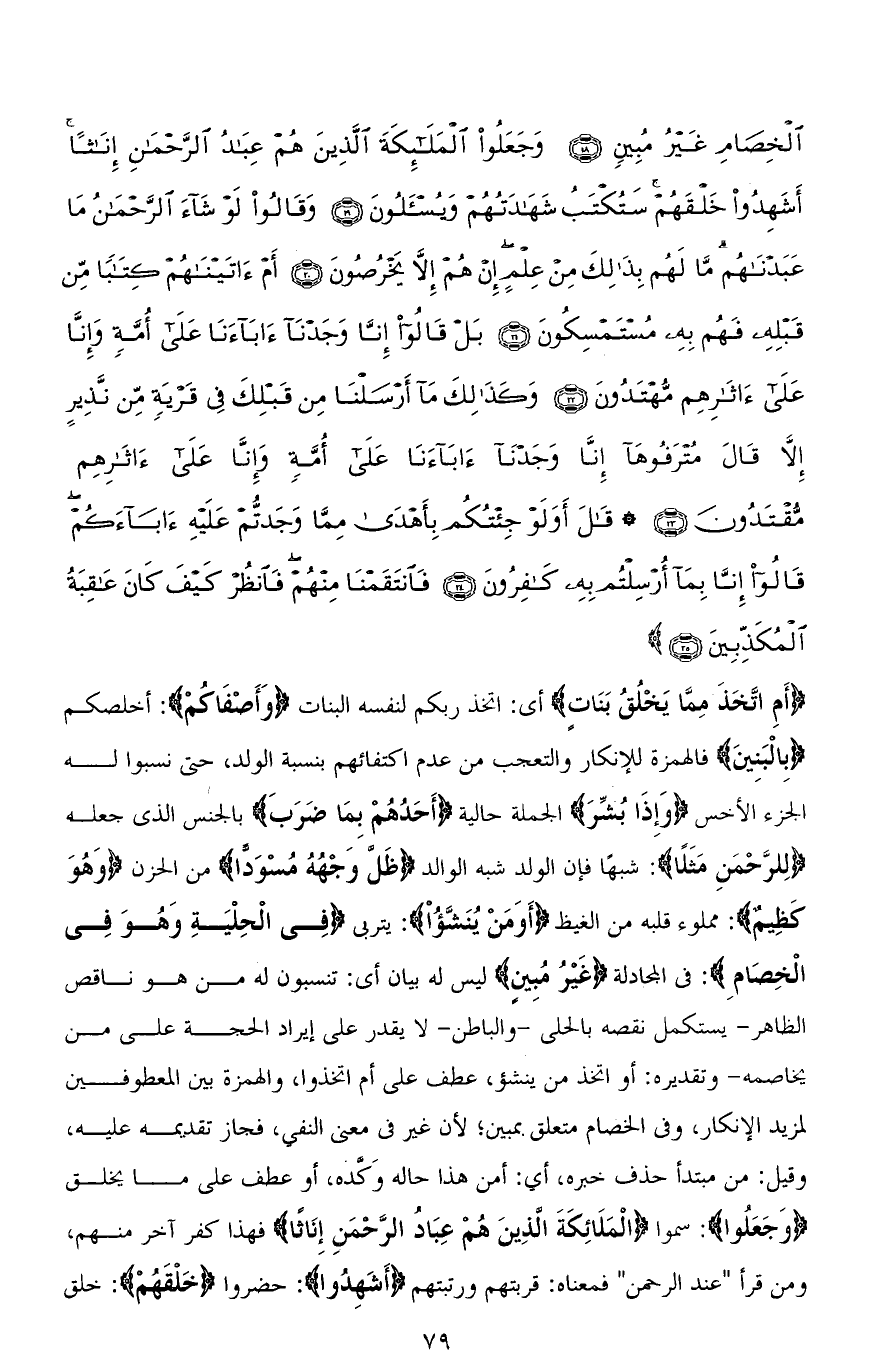 ٱلْخِصَامِ غَيْرُ مُبِينٍ ﴿١٨﴾ وَجَعَلُوا۟ ٱلْمَلَـٰٓئِكَةَ ٱلَّذِينَ هُمْ عِبَـٰدُ ٱلرَّحْمَـٰنِ إِنَـٰثًا ۚ
أَشَهِدُوا۟ خَلْقَهُمْ ۚ سَتُكْتَبُ شَهَـٰدَتُهُمْ وَيُسْـَٔلُونَ ﴿١٩﴾ وَقَالُوا۟ لَوْ شَآءَ ٱلرَّحْمَـٰنُ مَا
عَبَدْنَـٰهُم ۗ مَّا لَهُم بِذَٰلِكَ مِنْ عِلْمٍ ۖ إِنْ هُمْ إِلَّا يَخْرُصُونَ ﴿٢٠﴾ أَمْ ءَاتَيْنَـٰهُمْ كِتَـٰبًا مِّن
قَبْلِهِۦ فَهُم بِهِۦ مُسْتَمْسِكُونَ ﴿٢١﴾ بَلْ قَالُوٓا۟ إِنَّا وَجَدْنَآ ءَابَآءَنَا عَلَىٰٓ أُمَّةٍ وَإِنَّا
عَلَىٰٓ ءَاثَـٰرِهِم مُّهْتَدُونَ ﴿٢٢﴾ وَكَذَٰلِكَ مَآ أَرْسَلْنَا مِن قَبْلِكَ فِى قَرْيَةٍ مِّن نَّذِيرٍ
إِلَّا قَالَ مُتْرَفُوهَآ إِنَّا وَجَدْنَآ ءَابَآءَنَا عَلَىٰٓ أُمَّةٍ وَإِنَّا عَلَىٰٓ ءَاثَـٰرِهِم
مُّقْتَدُونَ ﴿٢٣﴾ ۞ قَـٰلَ أَوَلَوْ جِئْتُكُم بِأَهْدَىٰ مِمَّا وَجَدتُّمْ عَلَيْهِ ءَابَآءَكُمْ ۖ
قَالُوٓا۟ إِنَّا بِمَآ أُرْسِلْتُم بِهِۦ كَـٰفِرُونَ ﴿٢٤﴾ فَٱنتَقَمْنَا مِنْهُمْ ۖ فَٱنظُرْ كَيْفَ كَانَ عَـٰقِبَةُ
ٱلْمُكَذِّبِينَ ﴿٢٥﴾ ﴾
﴿أَمِ اتَّخَذَ مِمَّا يَخْلُقُ بَنَاتٍ﴾ أى: اتخذ ربكم لنفسه البنات ﴿وَأَصْفَاكُمْ﴾: أخلصكم
﴿بِالْبَنِينَ﴾ فالهمزة للإنكار والتعجب من عدم اكتفائهم بنسبة الولد، حتى نسبوا له
الجزء الأخس ﴿وَإِذَا بُشِّرَ﴾ الجملة حالية ﴿أَحَدُهُمْ بِمَا ضَرَبَ﴾ بالجنس الذى جعله
﴿لِلرَّحْمَنِ مَثَلًا﴾: شبهًا فإن الولد شبه الوالد ﴿ظَلَّ وَجْهُهُ مُسْوَدًّا﴾ من الحزن ﴿وَهُوَ
كَظِيمٌ﴾: مملوء قلبه من الغيظ ﴿أَوَمَنْ يُنَشَّؤُاْ﴾: يتربى ﴿فِى الْحِلْيَةِ وَهُوَ فِى
الْخِصَامِ ﴾: فى المجادلة ﴿غَيْرُ مُبِينٍ﴾ ليس له بيان أى: تنسبون له من هو ناقص
الظاهر- يستكمل نقصه بالحلى -والباطن- لا يقدر على إيراد الحجة على من
يخاصمه- وتقديره: أو اتخذ من ينشؤ، عطف على أم اتخذوا، والهمزة بين المعطوفين
لمزيد الإنكار، وفى الخصام متعلق بمبين؛ لأن غير فى معنى النفي، فجاز تقديمه عليه،
وقيل: من مبتدأ حذف خبره، أي: أمن هذا حاله وَكَّده، أو عطف على ما يخلق
﴿وَجَعَلُوا﴾: سموا ﴿الْمَلَائِكَةَ الَّذِينَ هُمْ عِبَادُ الرَّحْمَنِ إِنَاثًا﴾ فهذا كفر آخر منهم،
ومن قرأ "عند الرحمن" فمعناه: قربتهم ورتبتهم ﴿أَشَهِدُوا﴾: حضروا ﴿خَلْقَهُمْ﴾: خلق
٧٩